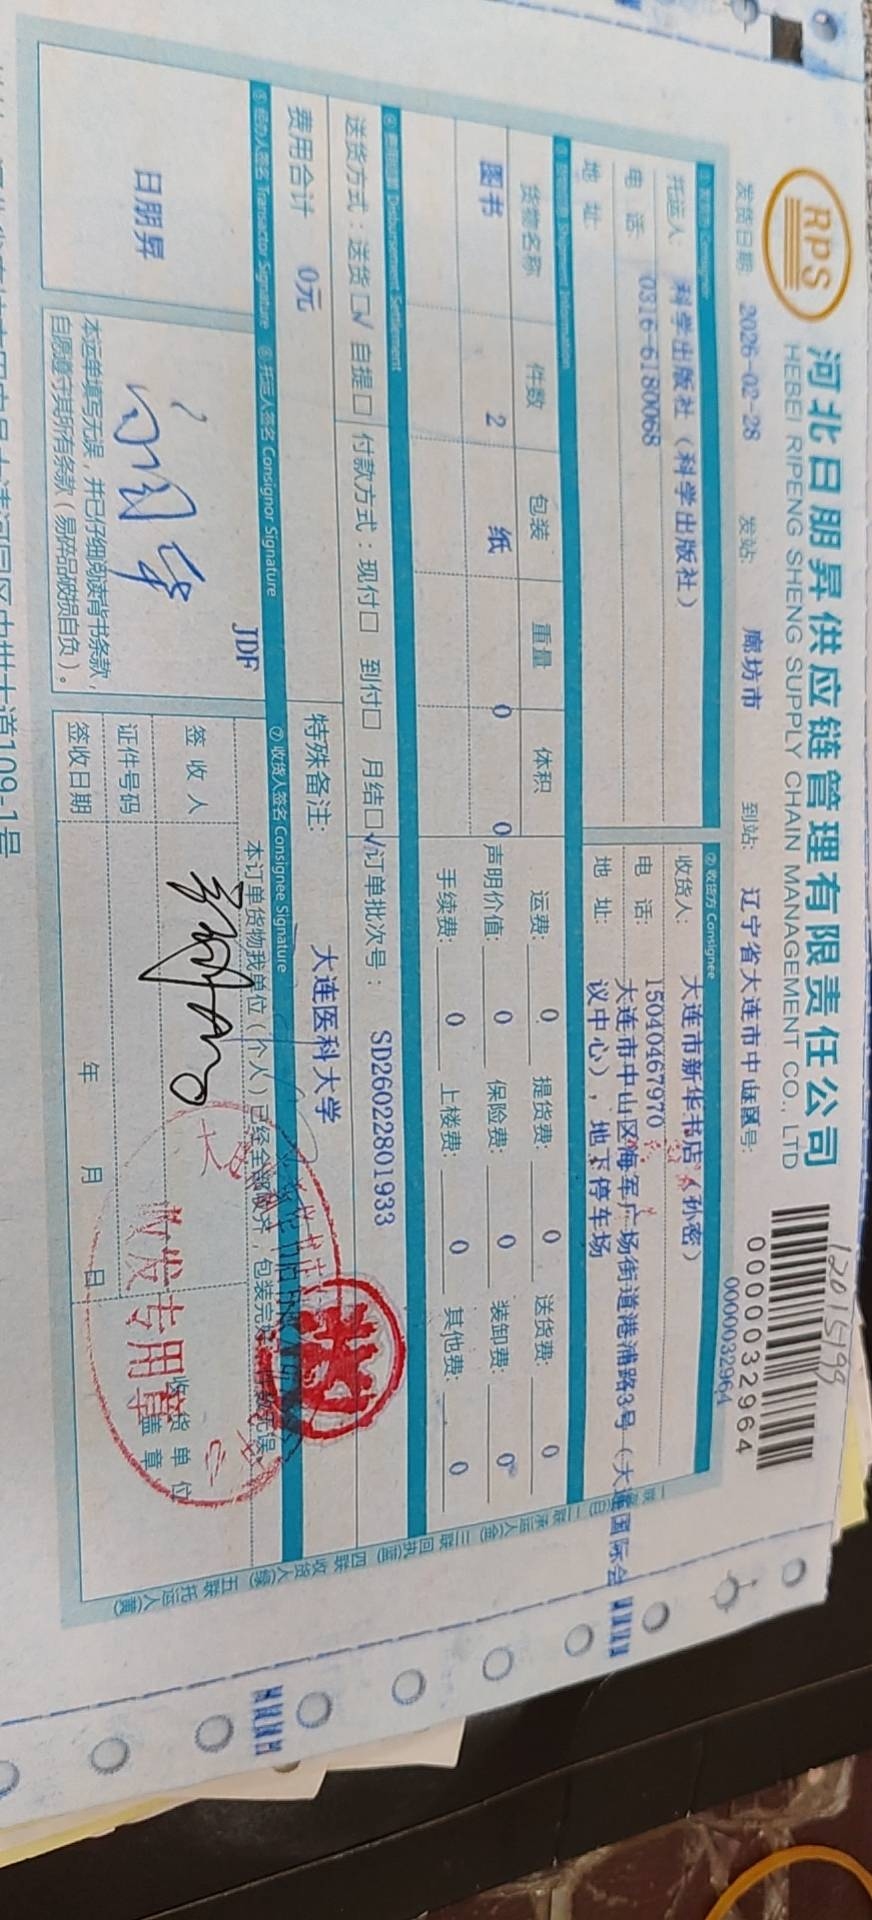 RPS
河北日朋昇供应链管理有限责任公司
HEBEI RIPENG SHENG SUPPLY CHAIN MANAGEMENT CO., LTD
12015199
0000032964
0000032964
发货日期: 2026-02-28 发站: 廊坊市 到站: 辽宁省大连市中山区 号:
① 发货方 Consignor ② 收货方 Consignee
托运人: 科学出版社（科学出版社） 收货人: 大连市新华书店（孙密）
电 话: 0316-6180068 电 话: 15040467970
地 址: 地 址: 大连市中山区海军广场街道港浦路3号（大连国际会
议中心），地下停车场
③ 货物信息 Shipment Information
货物名称 件数 包装 重量 体积 运费: 0 提货费: 0 送货费: 0
图书 2 纸 0 0 声明价值: 0 保险费: 0 装卸费: 0
手续费: 0 上楼费: 0 其他费: 0
④ 费用结算 Disbursement Settlement
送货方式：送货☐√ 自提☐ 付款方式：现付☐ 到付☐ 月结☐√ 订单批次号： SD26022801933
费用合计 0元 特殊备注: 大连医科大学
⑤ 经办人签名 Transactor Signature ⑥ 托运人签名 Consignor Signature ⑦ 收货人签名 Consignee Signature
日朋昇
JDF
本运单填写无误，并已仔细阅读背书条款，
自愿遵守其所有条款（易碎品破损自负）。
本订单货物我单位（个人）已经全部收齐，包装完好，件数无误。
签 收 人
证件号码
签收日期 年 月 日
收货单位
盖 章
收发专用章
一联 二联 承运人 三联 回执 四联 收货人 五联 托运人
道109-1号